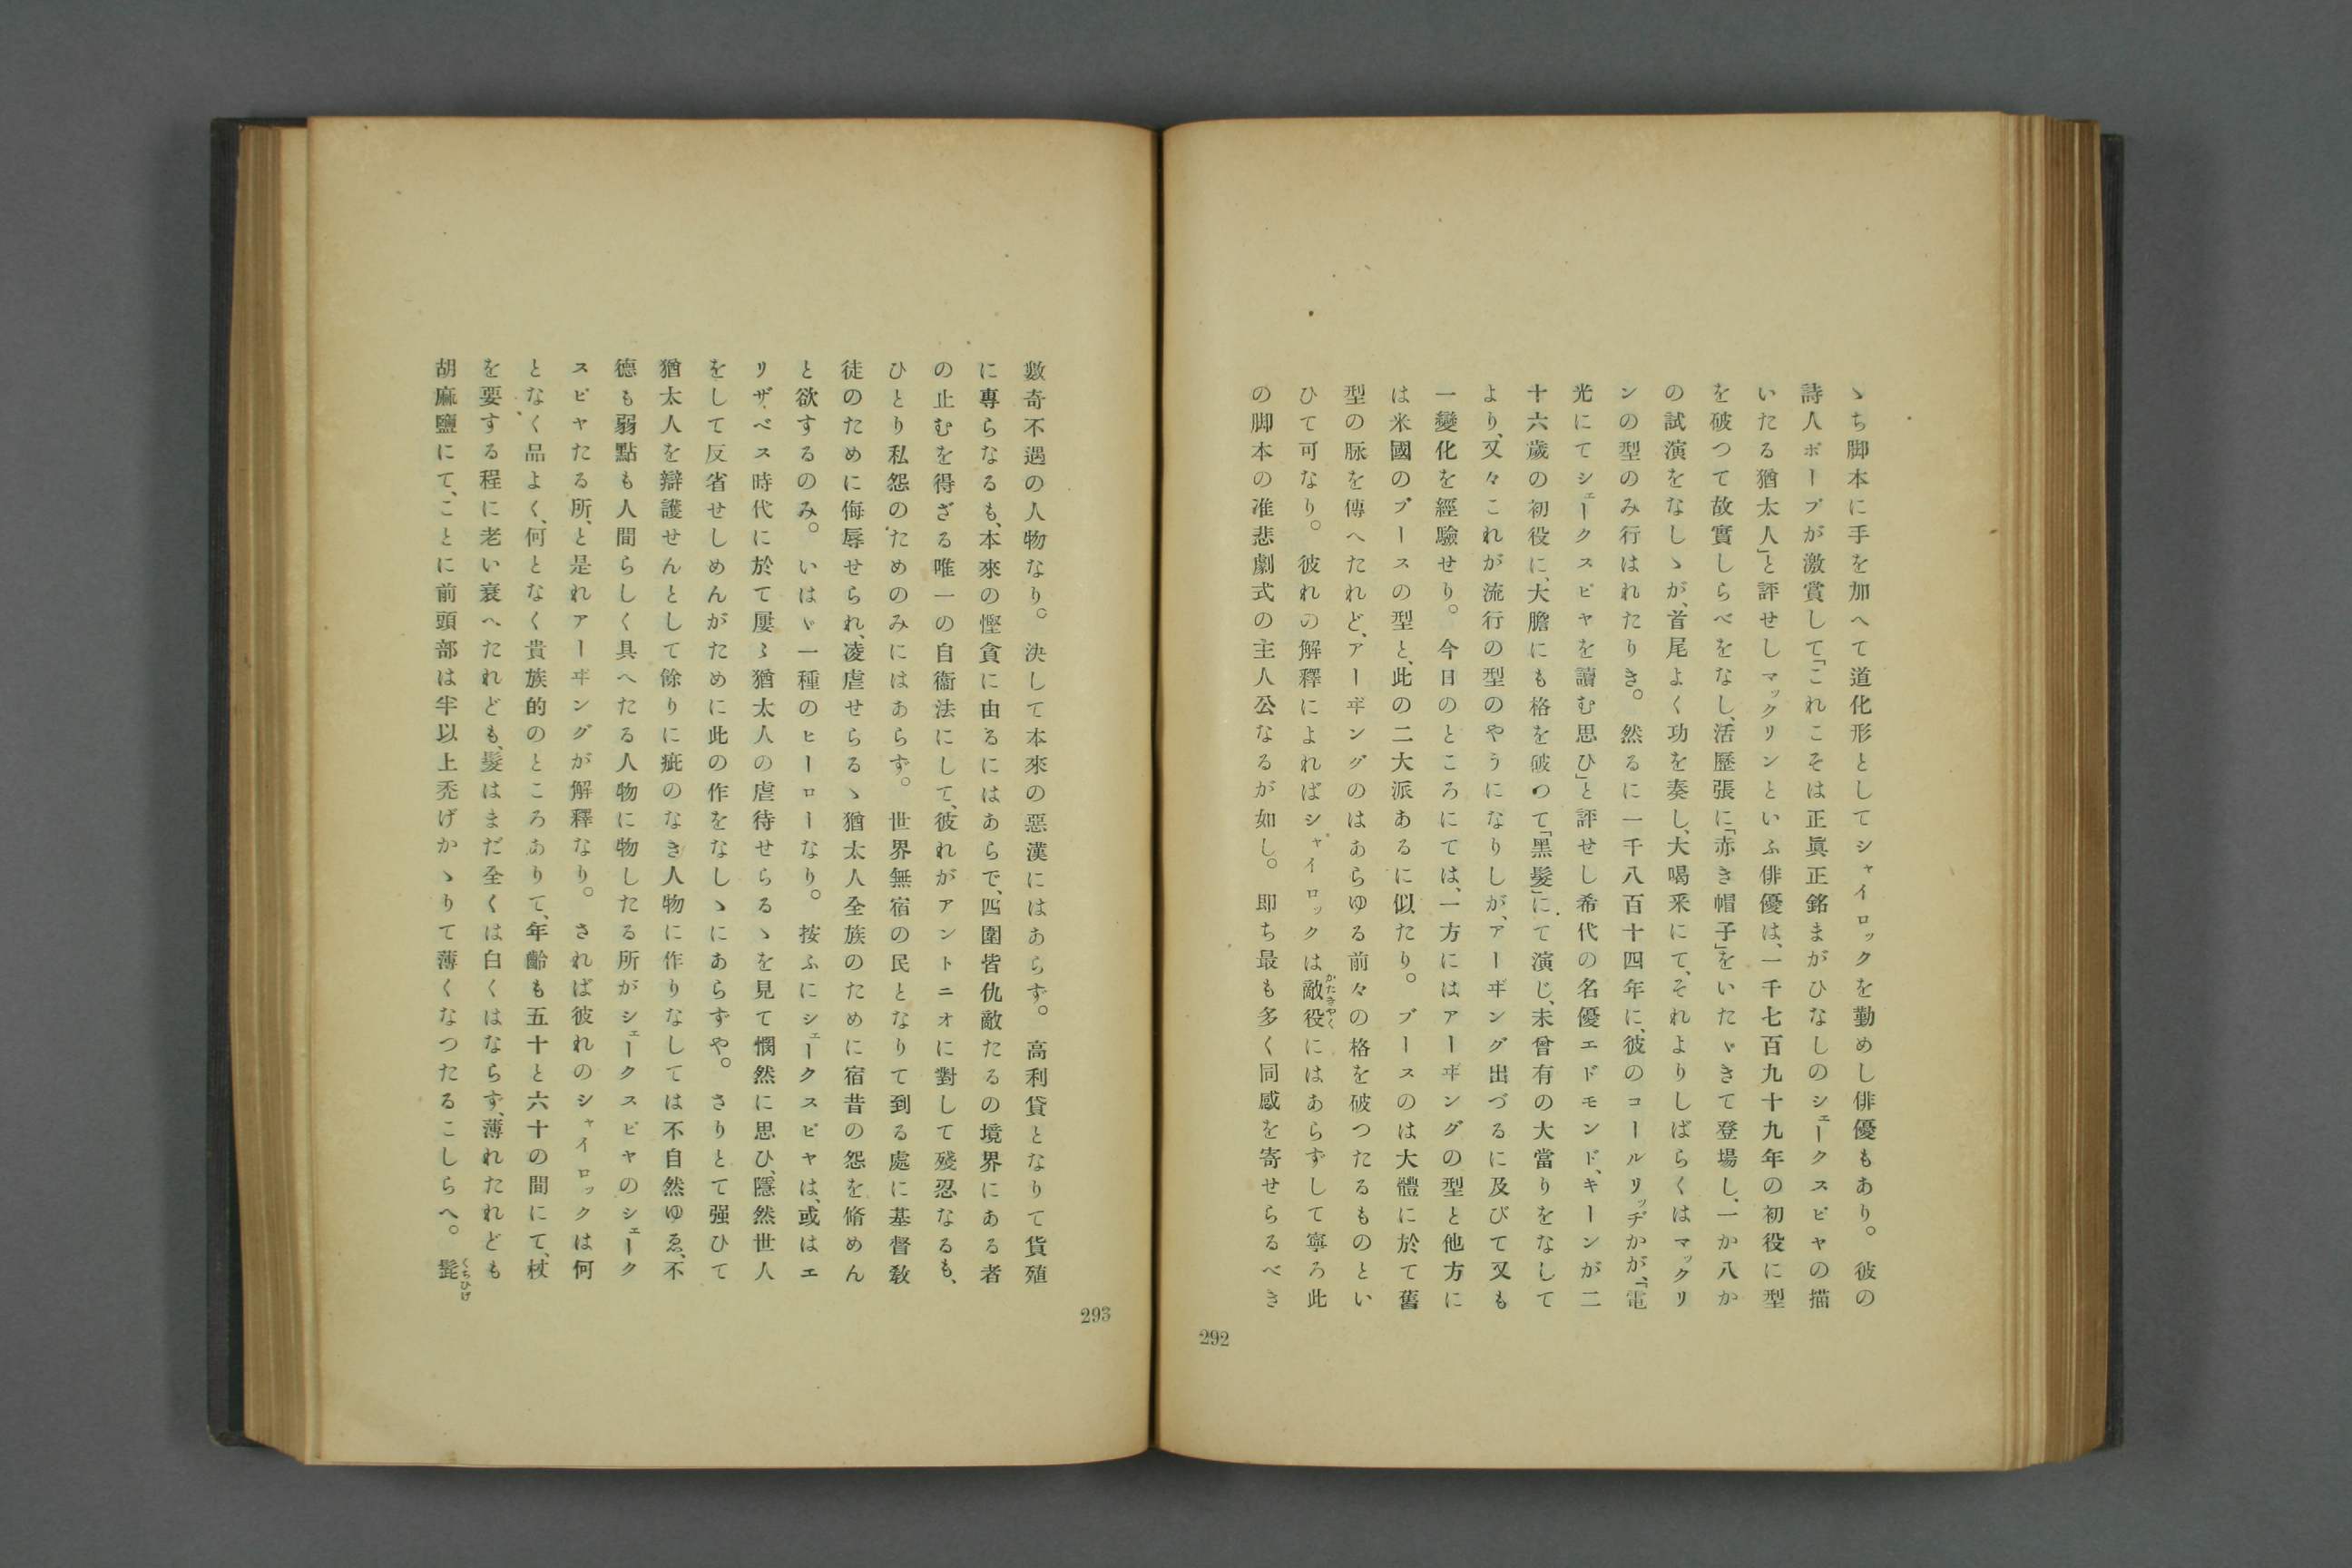 ゝち脚本に手を加へて道化形としてシャイロックを勤めし俳優もあり。彼の
詩人ポープが激賞して「これこそは正眞正銘まがひなしのシェークスピヤの描
いたる猶太人」と評せしマックリンといふ俳優は、一千七百九十九年の初役に型
を破つて故實しらべをなし、活歷張に「赤き帽子」をいたゞきて登場し、一か八か
の試演をなしゝが、首尾よく功を奏し、大喝釆にて、それよりしばらくはマックリ
ンの型のみ行はれたりき。然るに一千八百十四年に、彼のコールリッヂかが、「電
光にてシェークスピヤを讀む思ひ」と評せし希代の名優エドモンド、キーンが二
十六歲の初役に、大膽にも格を破つて「黑髮」にて演じ、未曾有の大當りをなして
より、又々これが流行の型のやうになりしが、アーヰング出づるに及びて又も
一變化を經驗せり。今日のところにては、一方にはアーヰングの型と他方に
は米國のブースの型と、此の二大派あるに似たり。ブースのは大體に於て舊
型の脉を傳へたれど、アーヰングのはあらゆる前々の格を破つたるものとい
ひて可なり。彼れの解釋によればシャイロックは敵役にはあらずして寧ろ此
の脚本の准悲劇式の主人公なるが如し。即ち最も多く同感を寄せらるべき
292
數奇不遇の人物なり。決して本來の惡漢にはあらず。高利貸となりて貨殖
に專らなるも、本來の慳貪に由るにはあらで、四圍皆仇敵たるの境界にある者
の止むを得ざる唯一の自衞法にして、彼れがアントニオに對して殘忍なるも、
ひとり私怨のためのみにはあらず。世界無宿の民となりて到る處に基督敎
徒のために侮辱せられ、凌虐せらるゝ猶太人全族のために宿昔の怨を脩めん
と欲するのみ。いはゞ一種のヒーローなり。按ふにシェークスピヤは、或はエ
リザベス時代に於て屢〻猶太人の虐待せらるゝを見て憫然に思ひ、隱然世人
をして反省せしめんがために此の作をなしゝにあらずや。さりとて强ひて
猶太人を辯護せんとして餘りに疵のなき人物に作りなしては不自然ゆゑ、不
德も弱點も人間らしく具へたる人物に物したる所がシェークスピヤのシェーク
スピヤたる所、と是れアーヰングが解釋なり。されば彼れのシャイロックは何
となく品よく、何となく貴族的のところありて、年齡も五十と六十の間にて、杖
を要する程に老い衰へたれども、髮はまだ全くは白くはならず、薄れたれども
胡麻鹽にて、ことに前頭部は半以上禿げかゝりて薄くなつたるこしらへ。髭
293